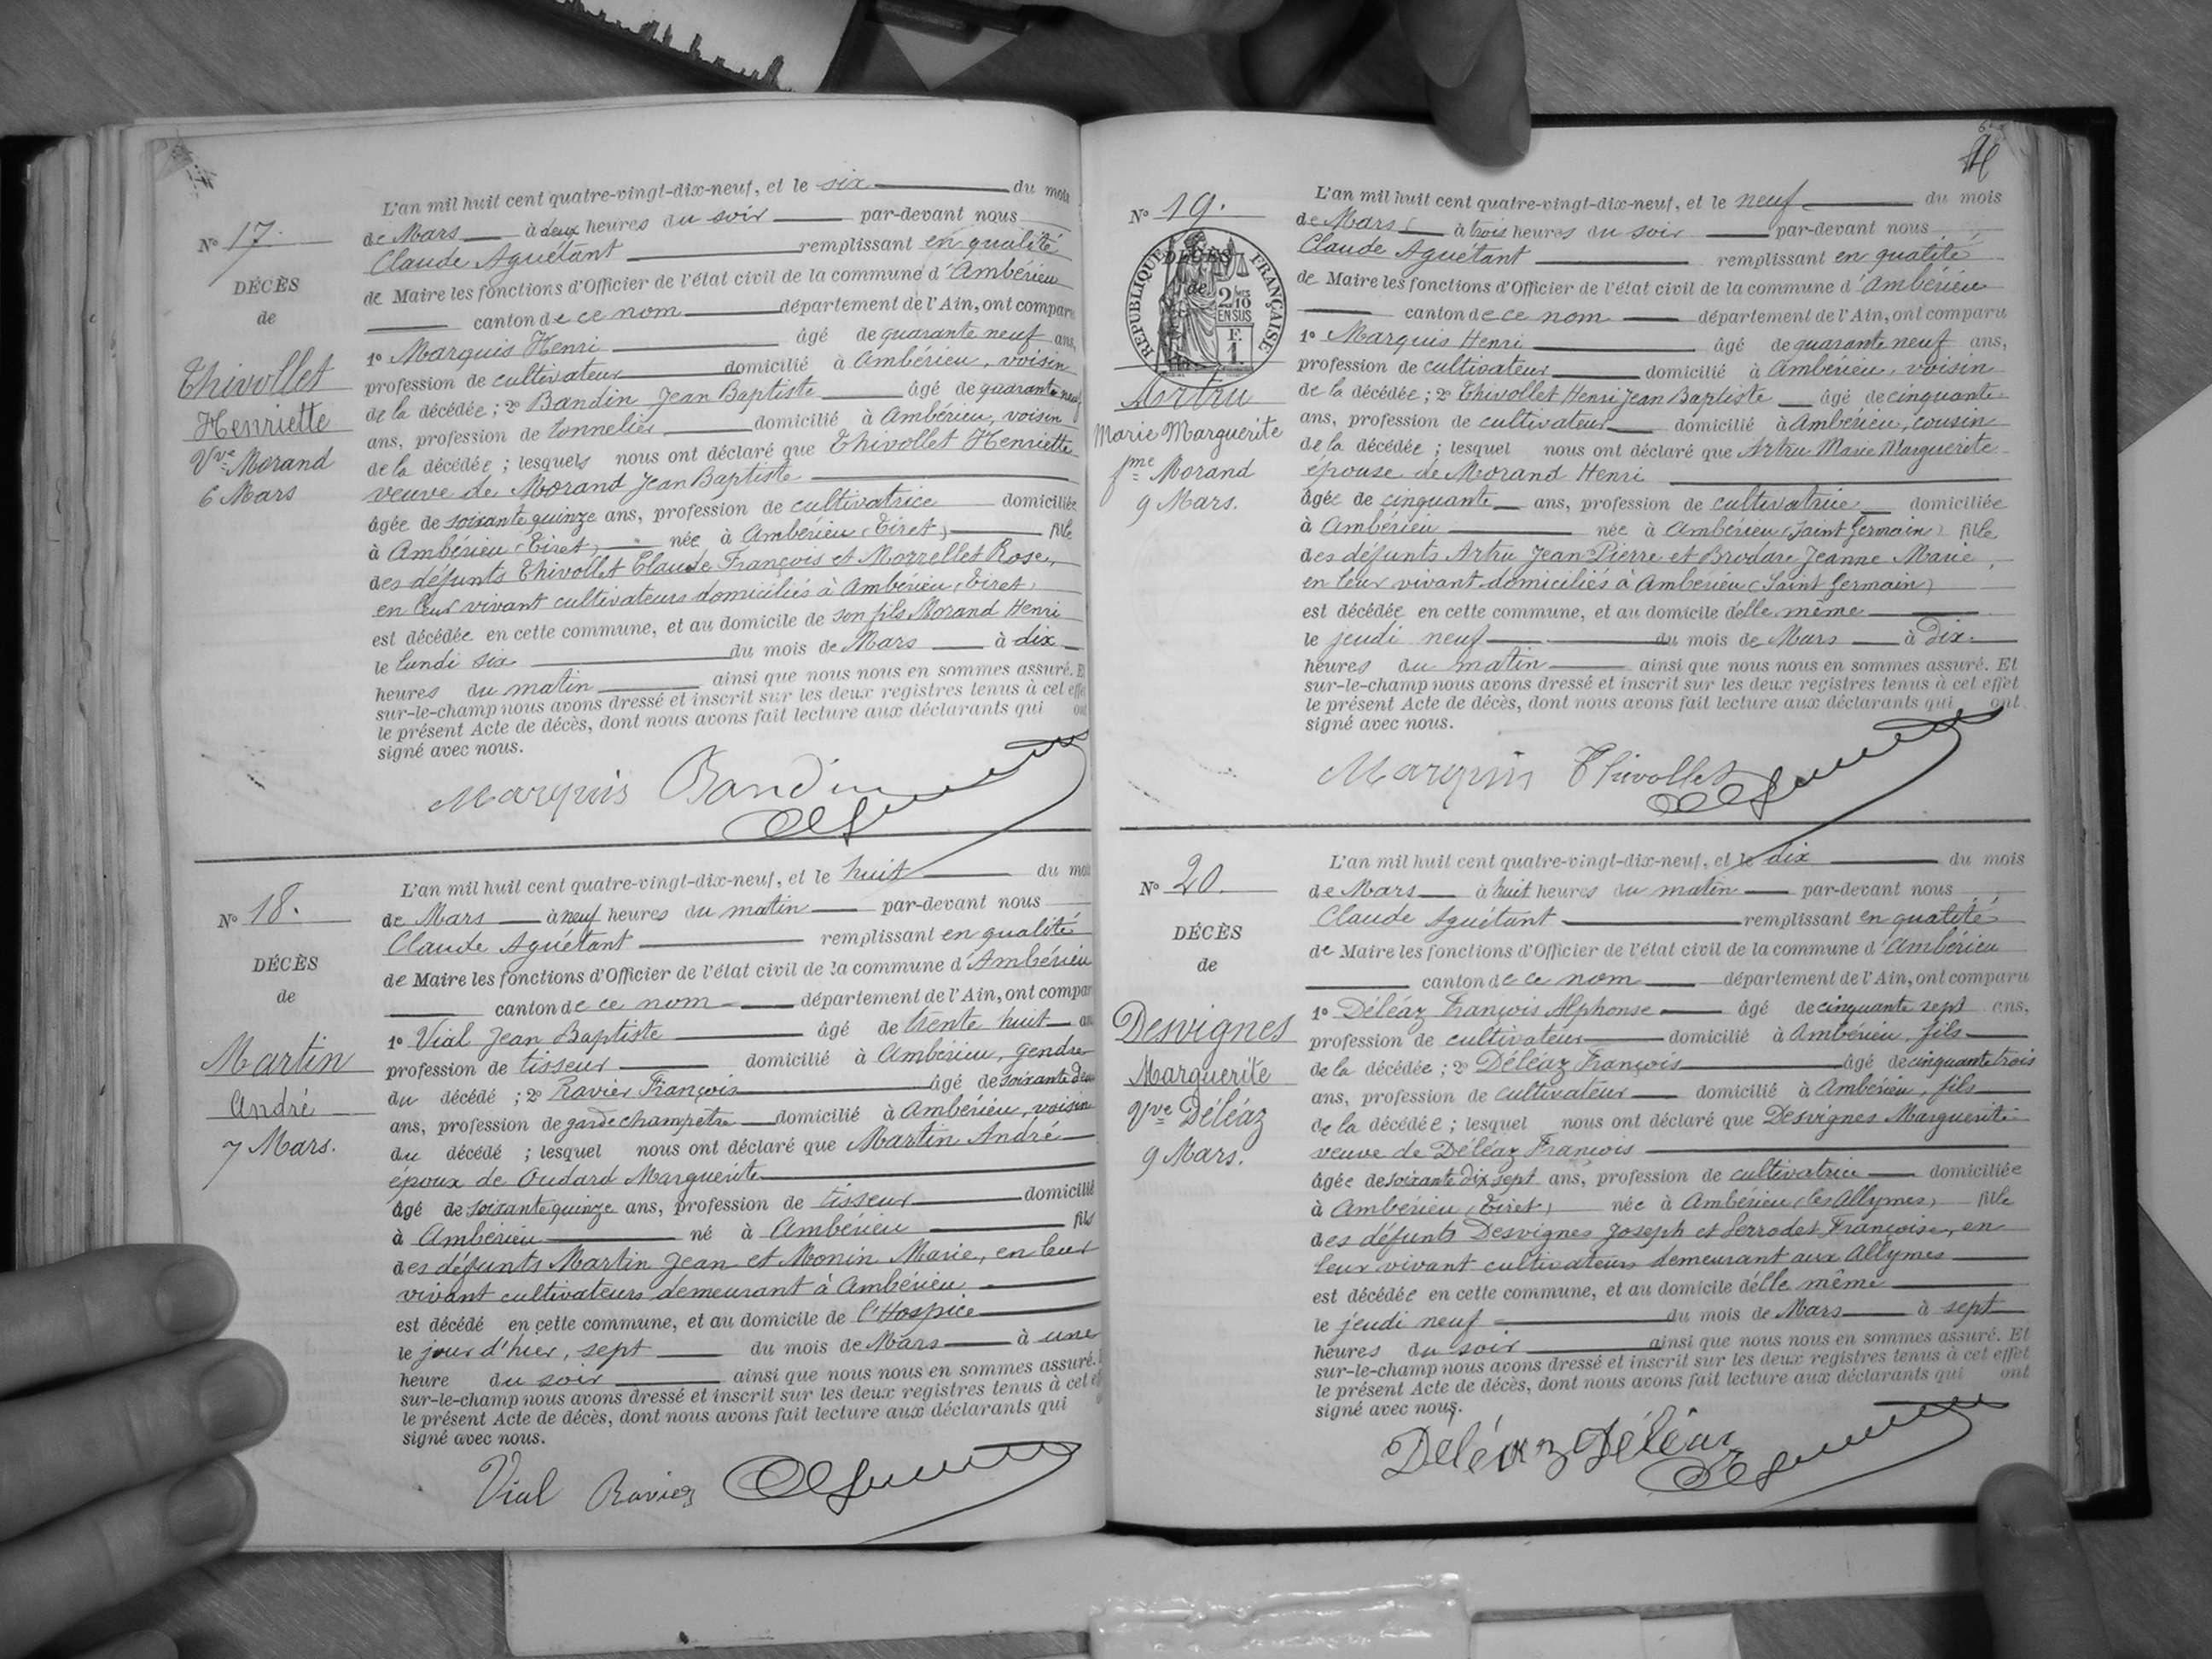 L'an mil huit cent quatre-vingt-dix-neuf, et le six du mois
N° 17.
de Mars à deux heures du soir par-devant nous
Claude Aguétant remplissant en qualité
DÉCÈS
de Maire les fonctions d'Officier de l'état civil de la commune d'Ambérieu
de
canton de ce nom département de l'Ain, ont comparu
1° Marquis Henri âgé de quarante neuf ans,
Thivollet
profession de cultivateur domicilié à Ambérieu, voisin
de la décédée ; 2° Bandin Jean Baptiste âgé de quarante neuf
Henriette
ans, profession de tonnelier domicilié à Ambérieu, voisin
Vve Morand
de la décédée ; lesquels nous ont déclaré que Thivollet Henriette
6 Mars
veuve de Morand Jean Baptiste
âgée de soixante quinze ans, profession de cultivatrice domiciliée
à Ambérieu (Tiret) née à Ambérieu (Tiret) fille
des défunts Thivollet Claude François et Morrellet Rose,
en leur vivant cultivateurs domiciliés à Ambérieu (Tiret)
est décédée en cette commune, et au domicile de son fils Morand Henri
le lundi six du mois de Mars à dix
heures du matin ainsi que nous nous en sommes assuré. Et
sur-le-champ nous avons dressé et inscrit sur les deux registres tenus à cet effet
le présent Acte de décès, dont nous avons fait lecture aux déclarants qui ont
signé avec nous.
Marquis Bandin
L'an mil huit cent quatre-vingt-dix-neuf, et le huit du mois
N° 18.
de Mars à neuf heures du matin par-devant nous
Claude Aguétant remplissant en qualité
DÉCÈS
de Maire les fonctions d'Officier de l'état civil de la commune d'Ambérieu
de
canton de ce nom département de l'Ain, ont compar
1° Vial Jean Baptiste âgé de trente huit an
Martin
profession de tisseur domicilié à Ambérieu, gendre
du décédé ; 2° Ravier François âgé de soixante deux
André
ans, profession de garde champêtre domicilié à Ambérieu, voisin
7 Mars.
du décédé ; lesquel nous ont déclaré que Martin André
époux de Oudard Marguerite
âgé de soixante quinze ans, profession de tisseur domicilié
à Ambérieu né à Ambérieu fils
des défunts Martin Jean et Monin Marie, en leur
vivant cultivateurs demeurant à Ambérieu
est décédé en cette commune, et au domicile de l'Hospice
le jour d'hier, sept du mois de Mars à une
heure du soir ainsi que nous nous en sommes assuré.
sur-le-champ nous avons dressé et inscrit sur les deux registres tenus à cet
le présent Acte de décès, dont nous avons fait lecture aux déclarants qui
signé avec nous.
Vial Ravier
L'an mil huit cent quatre-vingt-dix-neuf, et le neuf du mois
N° 19.
de Mars à trois heures du soir par-devant nous
Claude Aguétant remplissant en qualité
DÉCÈS
de
RÉPUBLIQUE FRANÇAISE
2/10 EN SUS
F. 1
de Maire les fonctions d'Officier de l'état civil de la commune d'Ambérieu
canton de ce nom département de l'Ain, ont comparu
1° Marquis Henri âgé de quarante neuf ans,
profession de cultivateur domicilié à Ambérieu, voisin
Artru
de la décédée ; 2° Thivollet Henri Jean Baptiste âgé de cinquante
ans, profession de cultivateur domicilié à Ambérieu, cousin
Marie Marguerite
de la décédée ; lesquel nous ont déclaré que Artru Marie Marguerite
fme Morand
épouse de Morand Henri
9 Mars.
âgée de cinquante ans, profession de cultivatrice domiciliée
à Ambérieu née à Ambérieu (Saint Germain) fille
des défunts Artru Jean Pierre et Brodare Jeanne Marie,
en leur vivant domiciliés à Ambérieu (Saint Germain)
est décédée en cette commune, et au domicile d'elle même
le jeudi neuf du mois de Mars à Dix
heures du matin ainsi que nous nous en sommes assuré. Et
sur-le-champ nous avons dressé et inscrit sur les deux registres tenus à cet effet
le présent Acte de décès, dont nous avons fait lecture aux déclarants qui ont
signé avec nous.
Marquis Thivollet
L'an mil huit cent quatre-vingt-dix-neuf, et le dix du mois
N° 20.
de Mars à huit heures du matin par-devant nous
Claude Aguétant remplissant en qualité
DÉCÈS
de Maire les fonctions d'Officier de l'état civil de la commune d'Ambérieu
de
canton de ce nom département de l'Ain, ont comparu
1° Déléaz François Alphonse âgé de cinquante sept ans,
Desvignes
profession de cultivateur domicilié à Ambérieu, fils
de la décédée ; 2° Déléaz François âgé de cinquante trois
Marguerite
ans, profession de cultivateur domicilié à Ambérieu, fils
Vve Déléaz
de la décédée ; lesquel nous ont déclaré que Desvignes Marguerite
9 Mars.
veuve de Déléaz François
âgée de soixante dix sept ans, profession de cultivatrice domiciliée
à Ambérieu (Tiret) née à Ambérieu (les Allymes) fille
des défunts Desvignes Joseph et Serrodet Françoise, en
leur vivant cultivateurs demeurant aux Allymes
est décédée en cette commune, et au domicile d'elle même
le jeudi neuf du mois de Mars à sept
heures du soir ainsi que nous nous en sommes assuré. Et
sur-le-champ nous avons dressé et inscrit sur les deux registres tenus à cet effet
le présent Acte de décès, dont nous avons fait lecture aux déclarants qui ont
signé avec nous.
Déléaz Déléaz